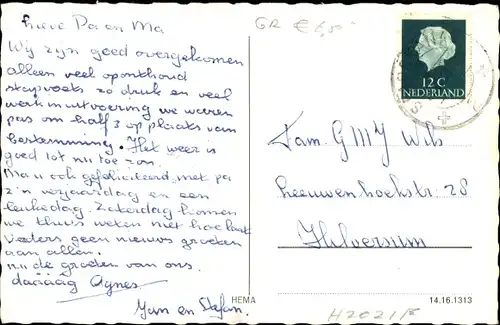 Lieve Pa en Ma
Wij zijn goed overgekomen
alleen veel oponthoud
stapvoets zo druk en veel
werk in uitvoering we waren
pas om half 3 op plaats van
bestemming. Het weer is
goed tot nu toe zon.
Ma u ook gefeliciteerd met pa
z'n verjaardag en een
leuke dag. Zaterdag komen
we thuis weten niet hoe laat
Verders geen nieuws groeten
aan allen.
nu de groeten van ons.
daaaag Agnes
Jan en Stefan.
GR € 6,50
12 C
NEDERLAND
Fam. G M Y Wils
Leeuwenhoekstr 28
Hilversum
HEMA
14.16.1313
H2021/5